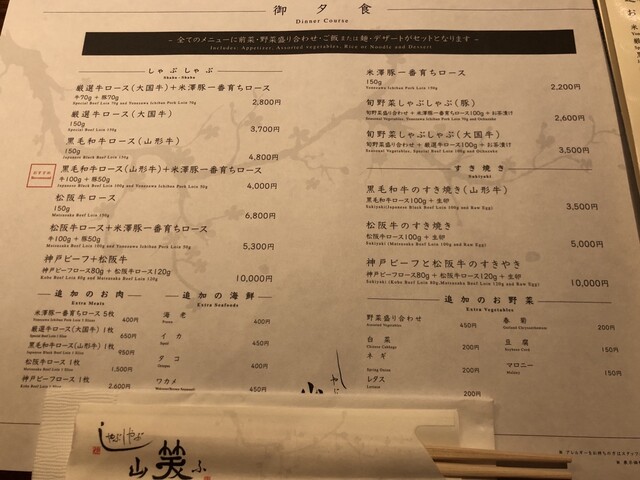 御夕食
Dinner Course
~ 全てのメニューに前菜・野菜盛り合わせ・ご飯または麺・デザートがセットとなります ~
Includes: Appetizer, Assorted vegetables, Rice or Noodle and Dessert
しゃぶしゃぶ
Shabu-Shabu
厳選牛ロース(大国牛)+米澤豚一番育ちロース
牛70g + 豚70g
Special Beef Loin 70g and Yonezawa Ichiban Pork Loin 70g
2,800円
厳選牛ロース(大国牛)
150g
Special Beef Loin 150g
3,700円
黒毛和牛ロース(山形牛)
150g
Japanese Black Beef Loin 150g
4,800円
おすすめ
黒毛和牛ロース(山形牛)+米澤豚一番育ちロース
牛100g + 豚50g
Japanese Black Beef Loin 100g and Yonezawa Ichiban Pork Loin 50g
4,000円
松阪牛ロース
150g
Matsusaka Beef Loin 150g
6,800円
松阪牛ロース+米澤豚一番育ちロース
牛100g + 豚50g
Matsusaka Beef Loin 100g and Yonezawa Ichiban Pork Loin 50g
5,300円
神戸ビーフ+松阪牛
神戸ビーフロース80g + 松阪牛ロース120g
Kobe Beef Loin 80g and Matsusaka Beef Loin 120g
10,000円
米澤豚一番育ちロース
150g
Yonezawa Ichiban Pork Loin 150g
2,200円
旬野菜しゃぶしゃぶ(豚)
旬野菜盛り合わせ + 米澤豚一番育ちロース100g + お茶漬け
Seasonal Vegetables, Yonezawa Ichiban Pork Loin 100g and Ochazuke
2,600円
旬野菜しゃぶしゃぶ(大国牛)
旬野菜盛り合わせ + 厳選牛ロース100g + お茶漬け
Seasonal Vegetables, Special Beef Loin 100g and Ochazuke
3,500円
すき焼き
Sukiyaki
黒毛和牛のすき焼き(山形牛)
黒毛和牛ロース100g + 生卵
Sukiyaki(Japanese Black Beef Loin 100g and Raw Egg)
3,500円
松阪牛のすき焼き
松阪牛ロース100g + 生卵
Sukiyaki (Matsusaka Beef Loin 100g and Raw Egg)
5,000円
神戸ビーフと松阪牛のすきやき
神戸ビーフロース80g + 松阪牛ロース120g + 生卵
Sukiyaki (Kobe Beef Loin 80g,Matsusaka Beef Loin 120g and Raw Egg)
10,000円
追加のお肉
Extra Meats
米澤豚一番育ちロース 5枚
400円
厳選牛ロース(大国牛) 1枚
650円
黒毛和牛ロース(山形牛) 1枚
950円
松阪牛ロース 1枚
1,500円
神戸ビーフロース 1枚
2,600円
追加の海鮮
Extra Seafoods
海老
400円
イカ
450円
タコ
400円
ワカメ
450円
追加のお野菜
Extra Vegetables
野菜盛り合わせ
Assorted Vegetables
450円
白菜
Chinese Cabbage
200円
ネギ
Spring Onion
200円
レタス
Lettuce
200円
春菊
Garland Chrysanthemum
200円
豆腐
150円
マロニー
Malony
150円
しゃぶしゃぶ
山笑ふ